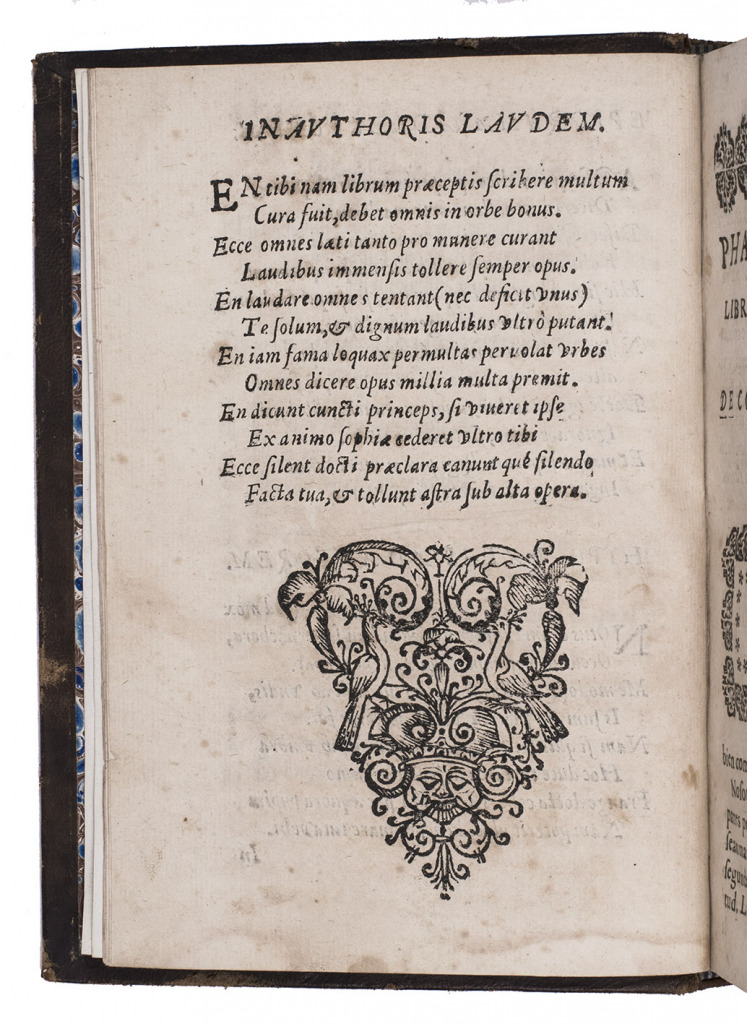 IN AVTHORIS LAVDEM.
EN tibi nam librum præceptis ſcribere multum
Cura fuit, debet omnis in orbe bonus.
Ecce omnes læti tanto pro munere curant
Laudibus immenſis tollere ſemper opus.
En laudare omnes tentant (nec deficit vnus)
Te ſolum, & dignum laudibus vltrò putant.
En iam fama loquax permultas peruolat vrbes
Omnes dicere opus millia multa premit.
En dicunt cuncti princeps, ſi viueret ipſe
Ex animo ſophiæ cederet vltro tibi
Ecce ſilent docti præclara canunt quê ſilendo
Facta tua, & tollunt aſtra ſub alta opera.
PHA
LIBR
DE CO
bien com
Noſo
pares p
ſeama
ſegunt
tud. L